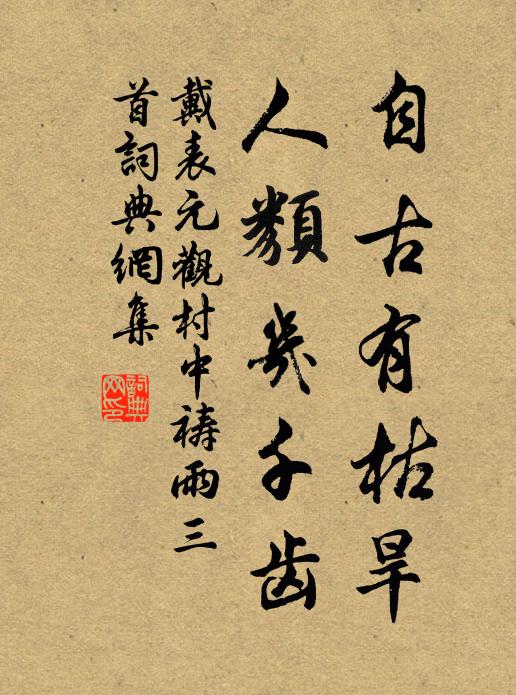 自古有枯旱
人類幾千齿
戴表元觀村中禱雨三
首詞典網集
詞典
网印